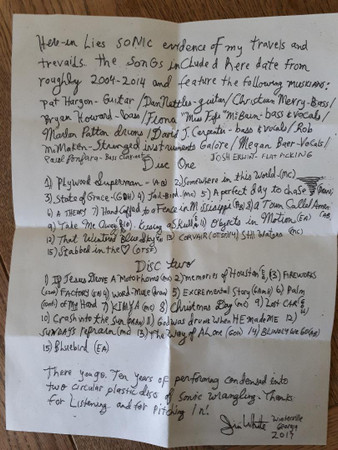 Here-in Lies SONIC evidence of my travels and
travails. The songs included here date from
roughly 2004-2014 and feature the following musicians:
Pat Hargon - Guitar / Dan Nettles - guitar / Christian Merry - Bass /
Bryan Howard - bass / Fiona "Miss Fifi" McBain - bass & Vocals /
Marlon Patton drums / David J. Carpenter - bass & vocals / Rob
McMaken - Stringed instruments Galore / Megan Baer - Vocals /
Bass Clarinet JOSH ERWIN - FLAT PICKING
Disc One
1) Plywood Superman - 2) Somewhere in this World (MC)
3) State of Grace - 4) Jail Bird (MC) 5) A perfect day to chase
6) A THEFT 7) Hand Cuffed to a Fence in Mississippi 8) a Town Called Amen
9) Take Me Away 10) Kissing a Skull 11) Objects in Motion (EA)
12) That Valentine Blue Sky 13) CORVAIR 14) Still Waters (MC)
15) Stabbed in the ♡ (OTSF)
Disc two
1) If Jesus Drove A Motorhome (MC) 2) Memories of Houston 3) FIREWORKS
FACTORY 4) Word-Mule 5) EXCREMENTAL Story 6) Palm
of My Hand 7) KIMYA (MC) 8) Christmas Day (MC) 9) Lost CAR
10) Crash into the Sun 11) God was drunk when HE made ME 12)
SUNDAYS refrain (MC) 13) the Way of ALONE 14) BLINDLY WE GO
15) Bluebird (EA)
There you go. Ten years of performing condensed into
two circular plastic discs of sonic wrangling. Thanks
for Listening and for Pitching In!
Jim White Winterville
Georgia
2014